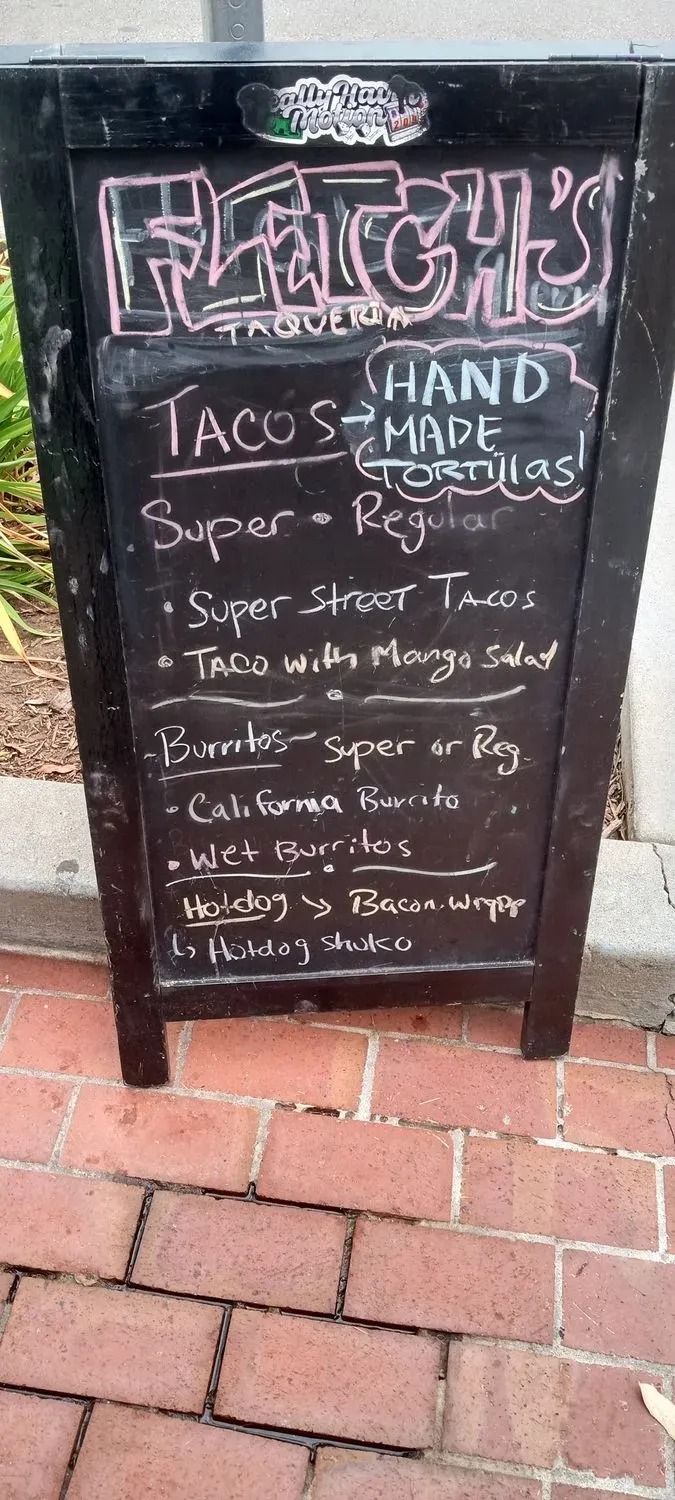 Really Have Motion
FLETCH'S
TAQUERIA
TACOS → HAND
MADE
TORTillas!
Super • Regular
• Super Street Tacos
• Taco with Mango Salad
Burritos ~ super or Reg.
• California Burrito
• Wet Burritos
Hotdog ↘ Bacon wrapp
↳ Hotdog shuko